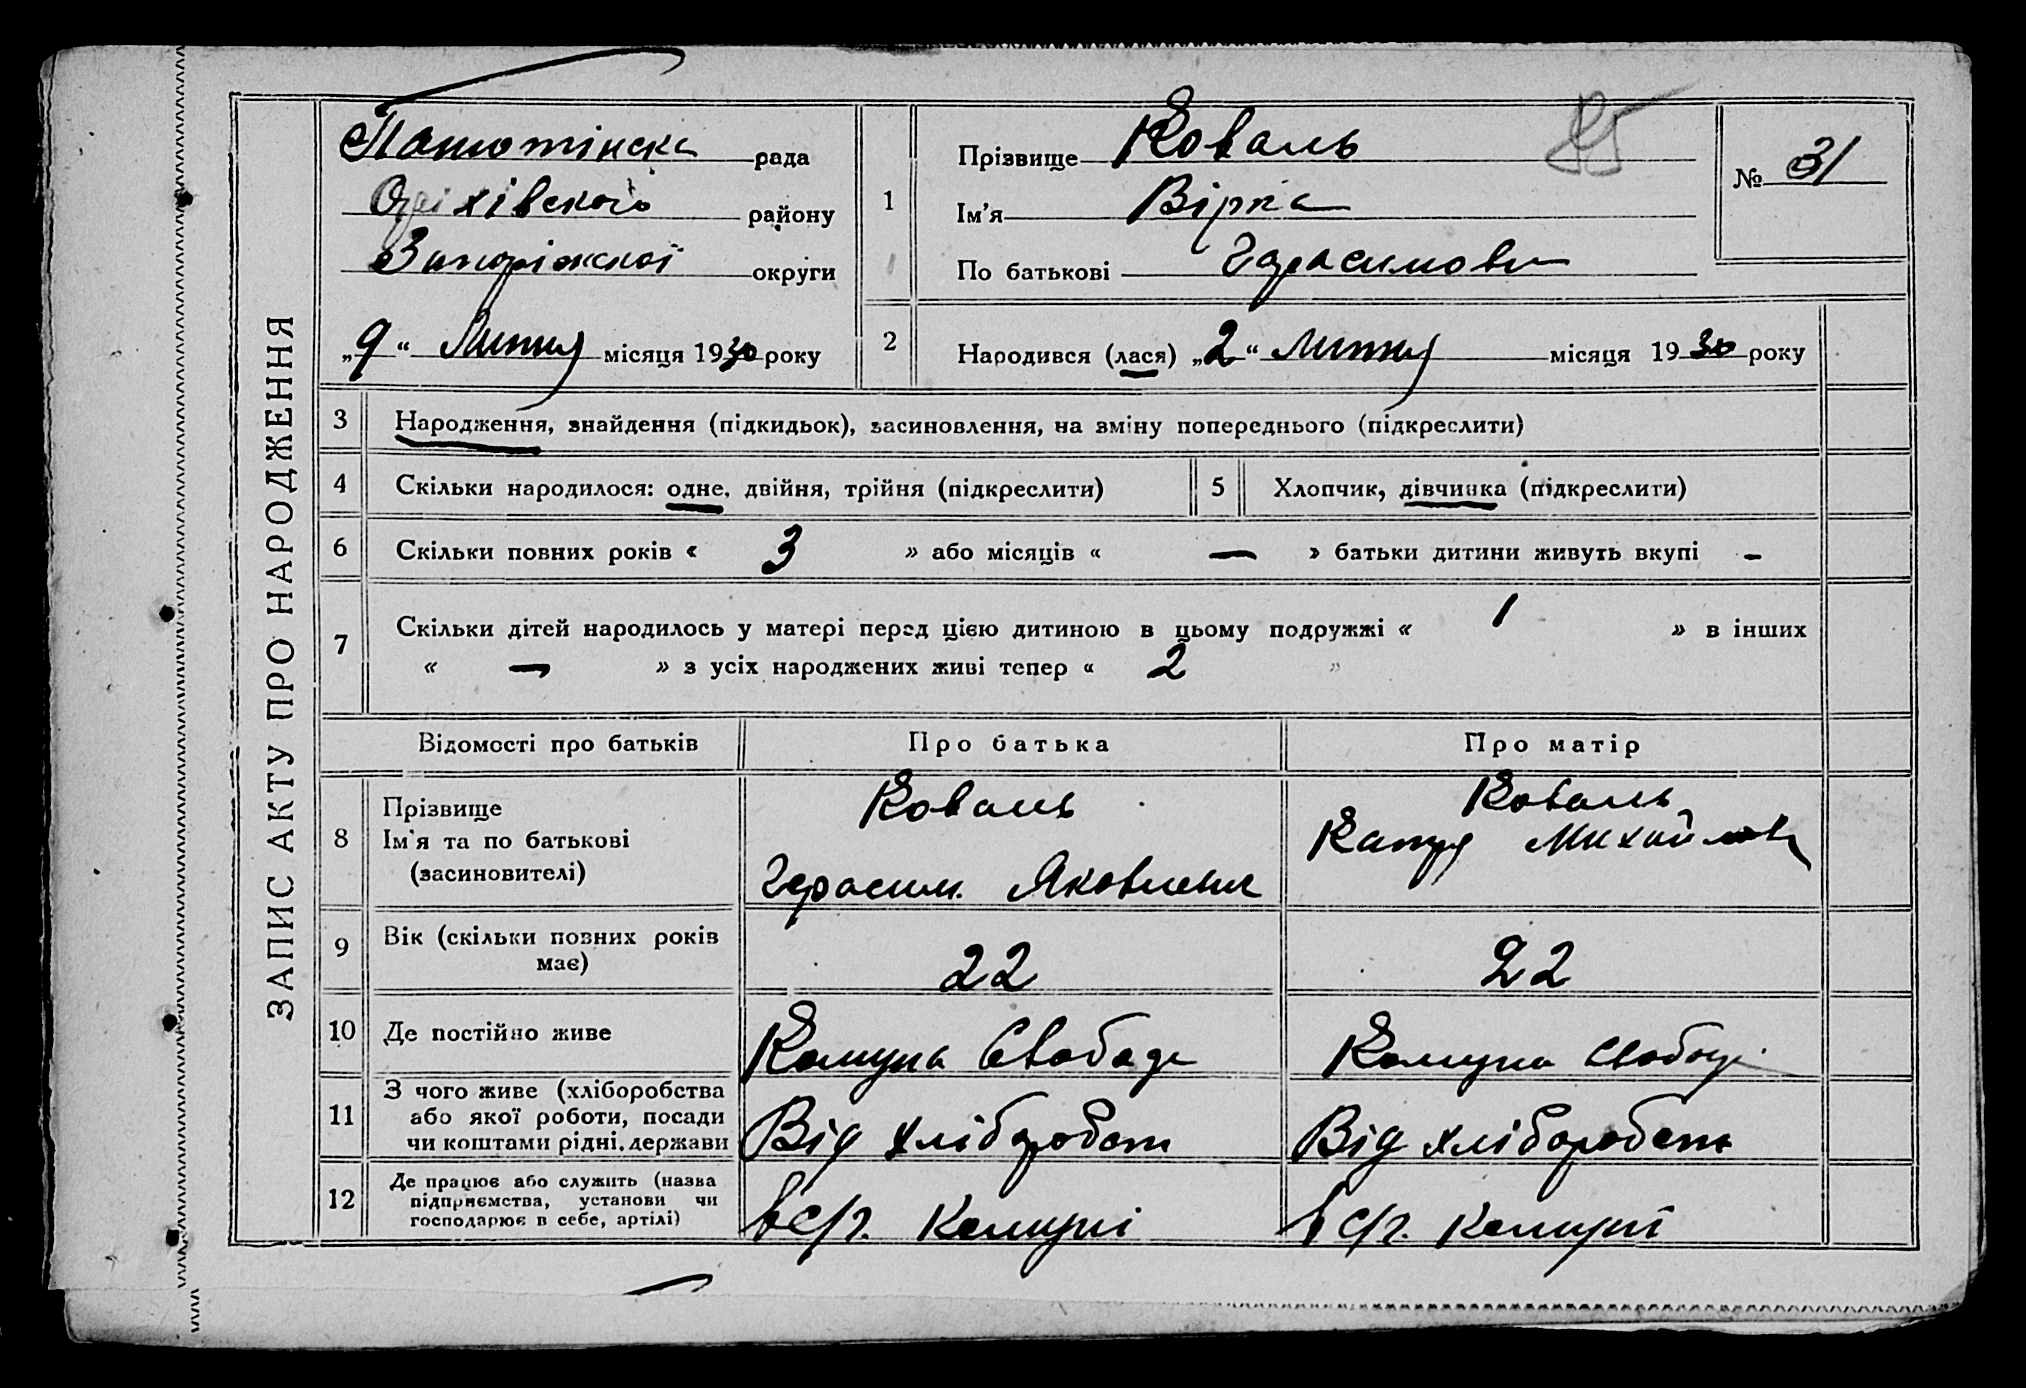 ЗАПИС АКТУ ПРО НАРОДЖЕННЯ
рада
Оріхівського району
Запоріжської округи
„9“ Липня місяця 1930 року
1
Прізвище Коваль
Ім’я Віра
По батькові Герасимовн
№ 31
2
Народився (лася) „2“ Липня місяця 1930 року
3
Народження, знайдення (підкидьок), засиновлення, на зміну попереднього (підкреслити)
4
Скільки народилося: одне, двійня, трійня (підкреслити)
5
Хлопчик, дівчинка (підкреслити)
6
Скільки повних років « 3 » або місяців « — » батьки дитини живуть вкупі –
7
Скільки дітей народилось у матері перед цією дитиною в цьому подружжі « 1 » в інших
« — » з усіх народжених живі тепер « 2 »
Відомості про батьків
Про батька
Про матір
8
Прізвище
Ім’я та по батькові
(засиновителі)
Коваль
Герасим Яковлевич
Коваль
Михайлов
9
Вік (скільки повних років
має)
22
22
10
Де постійно живе
Комуна Свобода
Комуна Свобода
11
З чого живе (хліборобства
або якої роботи, посади
чи коштами рідні, держави
Від хліборобст
Від хліборобств
12
Де працює або служить (назва
підприємства, установи чи
господарює в себе, артілі)
в с/г. комуні
в с/г. комуні